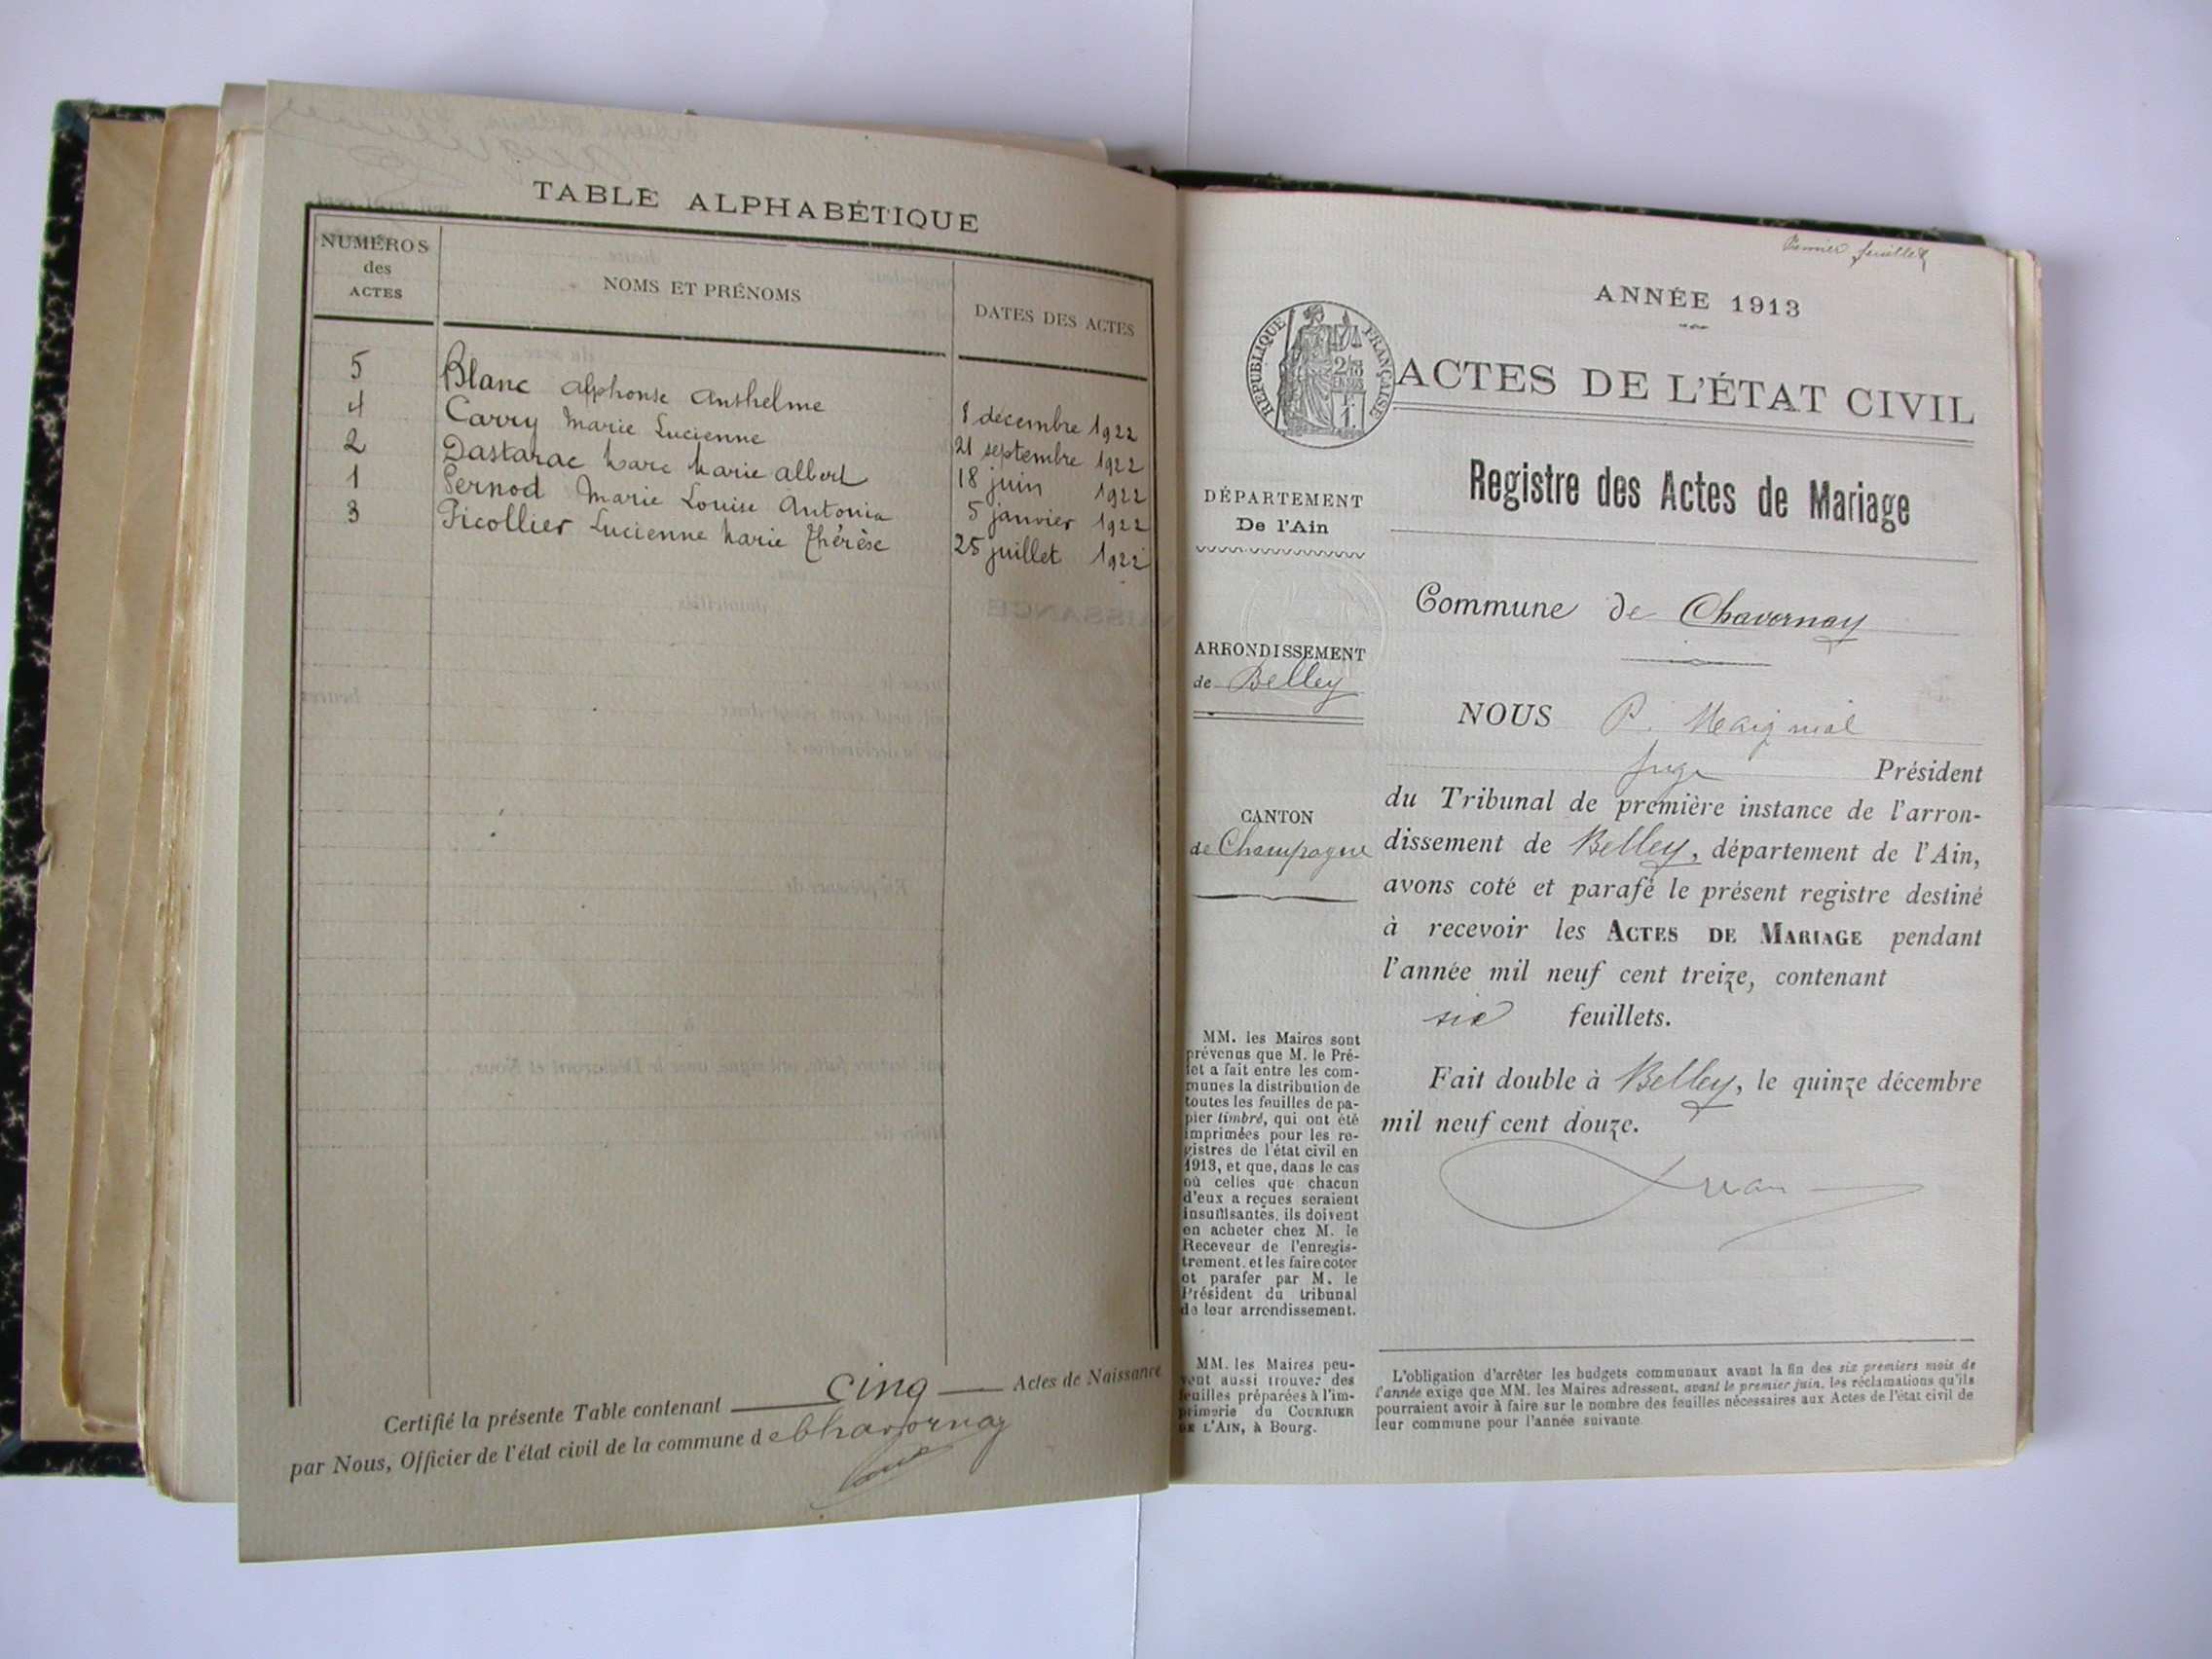 TABLE ALPHABÉTIQUE
NUMÉROS
des
ACTES
NOMS ET PRÉNOMS
DATES DES ACTES
5 Blanc Alphonse Anthelme 8 décembre 1922
4 Carry Marie Lucienne 21 septembre 1922
2 Dastarac Marc Marie Albert 18 juin 1922
1 Pernod Marie Louise Antonia 5 janvier 1922
3 Picollier Lucienne Marie Thérèse 25 juillet 1922
Certifié la présente Table contenant cinq Actes de Naissance
par Nous, Officier de l'état civil de la commune de Chavornay
Premier feuillet
ANNÉE 1913
RÉPUBLIQUE FRANÇAISE
ACTES DE L'ÉTAT CIVIL
Registre des Actes de Mariage
DÉPARTEMENT
De l'Ain
Commune de Chavornay
ARRONDISSEMENT
de Belley
NOUS P. Maignial
juge Président
du Tribunal de première instance de l'arron-
dissement de Belley, département de l'Ain,
avons coté et parafé le présent registre destiné
à recevoir les ACTES DE MARIAGE pendant
l'année mil neuf cent treize, contenant
six feuillets.
Fait double à Belley, le quinze décembre
mil neuf cent douze.
CANTON
de Champagne
MM. les Maires sont
prévenus que M. le Pré-
fet a fait entre les com-
munes la distribution de
toutes les feuilles de pa-
pier timbré, qui ont été
imprimées pour les re-
gistres de l'état civil en
1913, et que, dans le cas
où celles que chacun
d'eux a reçues seraient
insuffisantes, ils doivent
en acheter chez M. le
Receveur de l'enregis-
trement, et les faire coter
et parafer par M. le
Président du tribunal
de leur arrondissement.
MM. les Maires peu-
vent aussi trouver des
feuilles préparées à l'im-
primerie du COURRIER
DE L'AIN, à Bourg.
L'obligation d'arrêter les budgets communaux avant la fin des six premiers mois de
l'année exige que MM. les Maires adressent, avant le premier juin, les réclamations qu'ils
pourraient avoir à faire sur le nombre des feuilles nécessaires aux Actes de l'état civil de
leur commune pour l'année suivante.